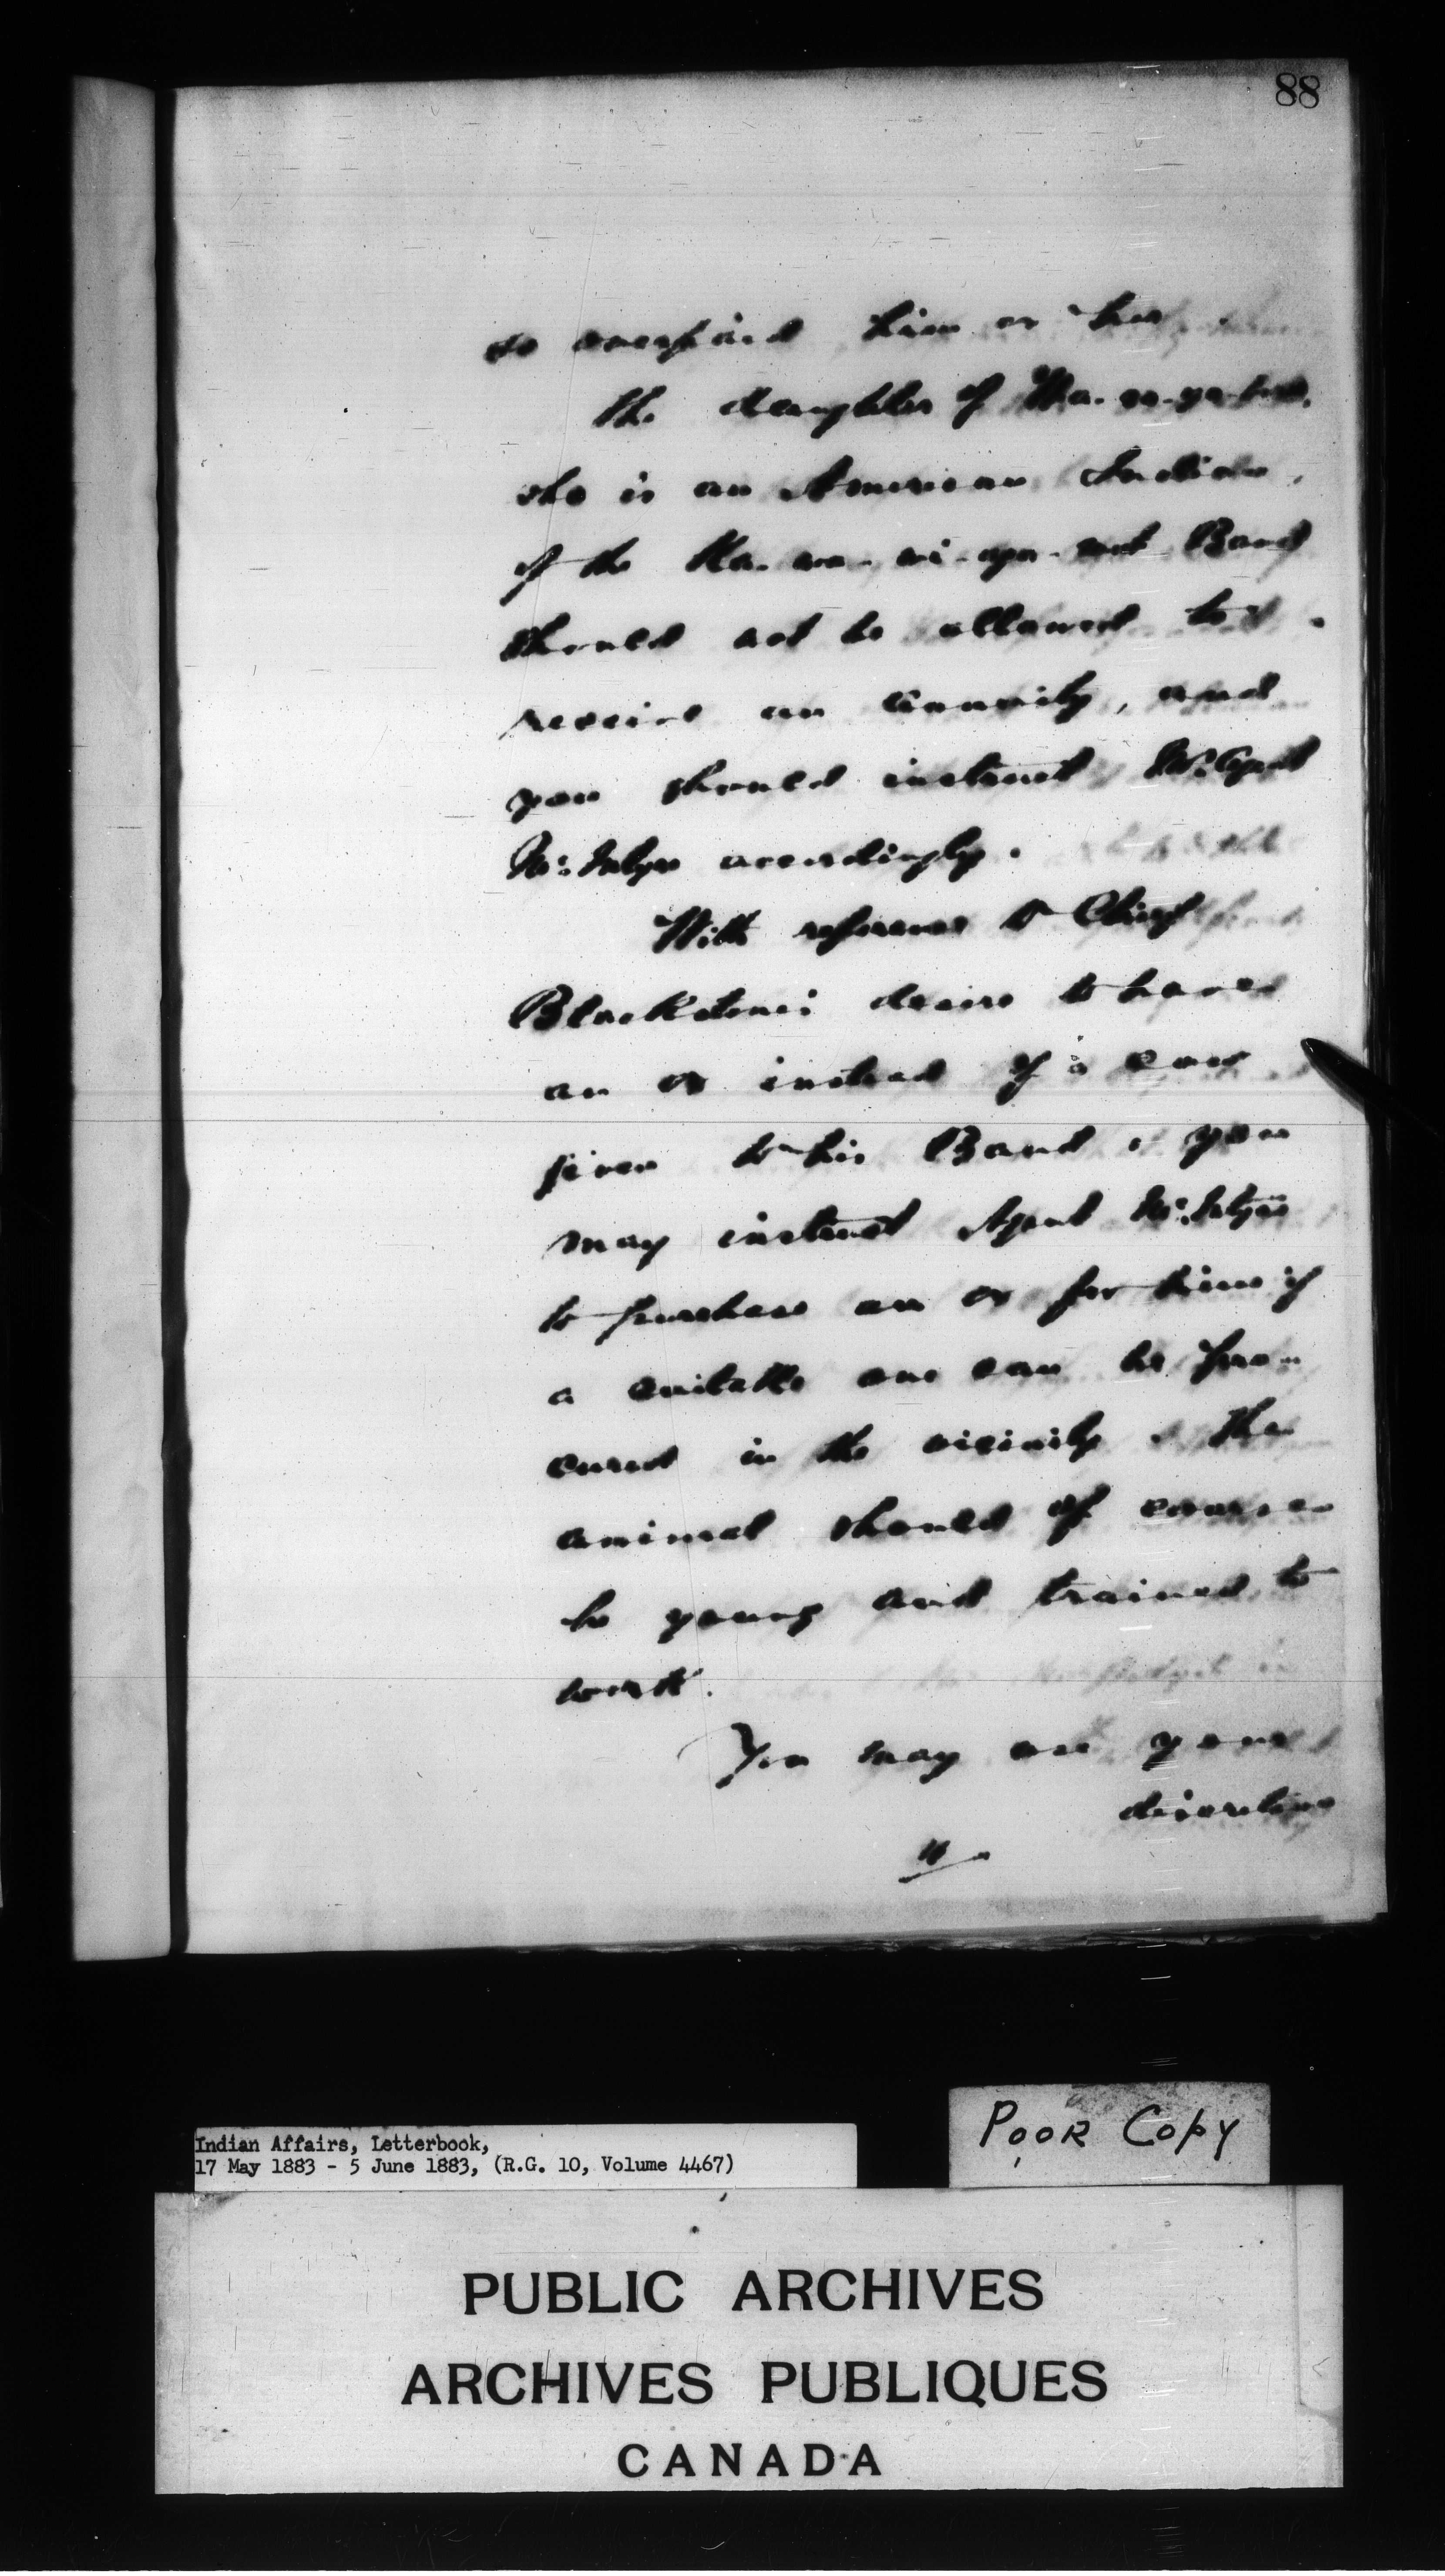 88
so overpaid him or her.
The daughter of
who is an American Indian,
of the Band
should not be allowed to
receive an annuity, and
you should instruct Mr. Agent
McIntyre accordingly.
With reference to Chief
Blackstone's desire to have
an ox instead of a cow
given to his Band, you
may instruct Agent McIntyre
to purchase an ox for him if
a suitable one can be pro-
cured in the vicinity. The
animal should of course
be young and trained to
work.
You may use your
discretion
Poor Copy
Indian Affairs, Letterbook,
17 May 1883 - 5 June 1883, (R.G. 10, Volume 4467)
PUBLIC ARCHIVES
ARCHIVES PUBLIQUES
CANADA